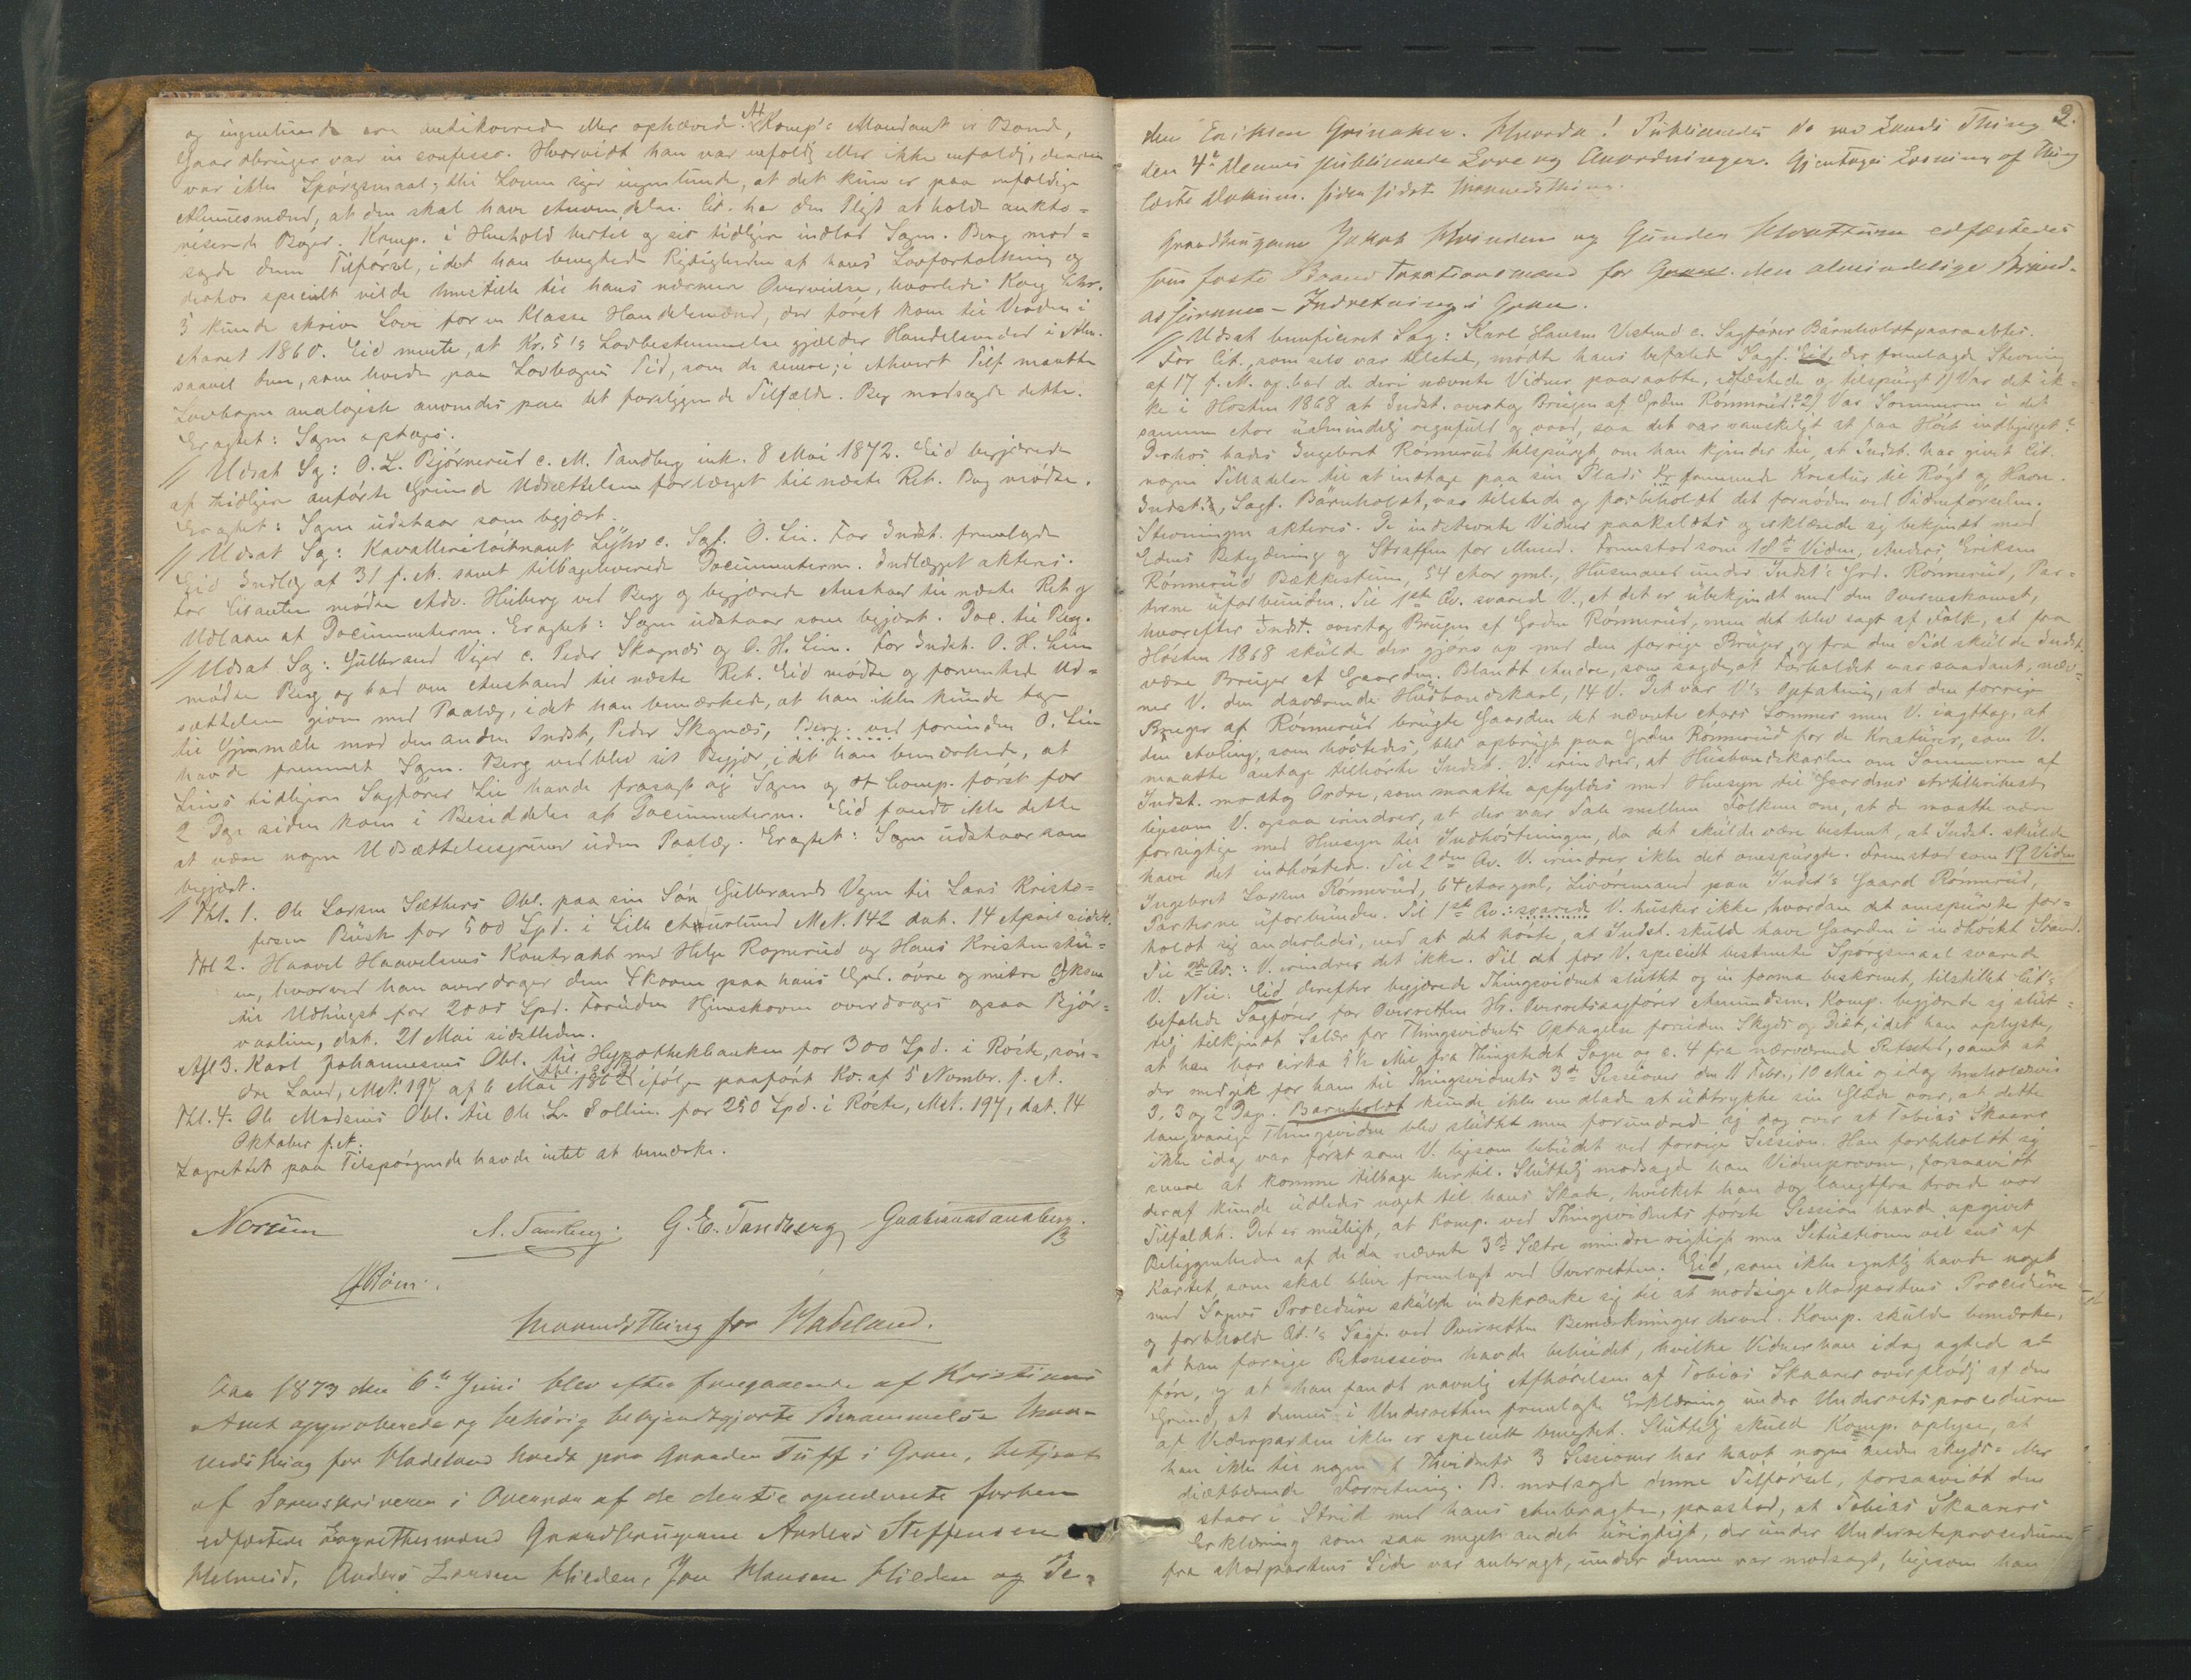 og ingenlunde era antikverede eller ophævede. At Komp's Mandant er Bonde,
Gaardbruger var in confesso. Hvorvidt han var enfoldig eller ikke enfoldig, derom
var ikke Spörgsmaal; thi Loven siger ingenlunde, at det kun er paa enfoldige
Almuesmænd, at den skal have Anvendelse. Cit. har den Pligt at holde aukto=
riserede Böger. Komp. i Henhold hertil og sit tidligere indlod Sagen. Berg mod=
sagde denne Tilförsel, idet han benegtede Rigtigheden af hans Lovfortolkning og
derhos specielt vilde henstille til hans nærmere Overveielse, hvorledes Kong Chr.
5 kunde skrive Love for en Klasse Handelsmænd, der först kom til Verden i
Aaret 1860. Eid mente, at Kr. 5's Lovbestemmelse gjælder Handelsmænd i Alm.
saavel dem, som levede paa Lovbogens Tid, som de senere; i ethvert Tilf. maatte
Lovbogen analogisk anvendes paa det foreliggende Tilfælde. Berg modsagde dette.
Eragtet: Sagen optages.
// Udsat Sag: O. L. Bjørnerud c. M. Tandberg ink. 8 Mai 1872. Eid begjærede
af tidligere anförte Grunde Udsættelsen forlænget til næste Ret. Berg mödte.
Eragtet: Sagen udstaar som begjært.
// Udsat Sag: Kavalleriløitnant Lÿhr c. Sagf. O. Lie. For Indst. fremlagde
Eid Indlæg af 31 f. M. samt tilbageleverede Documenterne. Indlægget akteres.
For Citanten mödte Adv. Hiberg ved Berg og begjærede Anstand til næste Ret og
Udlaan af Documenterne. Eragtet: Sagen udstaar som begjært. Doc. til Berg.
// Udsat Sag: Gulbrand Viger c. Peder Skognæs og O. H. Lien. For Indst. O. H. Lien
mödte Berg og bad om Anstand til næste Ret. Eid mödte og formente Ud=
sættelsen given med Paalæg, idet han bemærkede, at han ikke kunde tage
til Gjenmæle mod den anden Indst, Peder Skognæs, Berg ved forinden O. Lien
havde fremmet Sagen. Berg vedblev sit Begjær, idet han bemærkede, at
Liens tidligere Sagförer Lie havde frasagt sig Sagen og at Comp. först for
2 Dage siden kom i Besiddelse af Documenterne. Eid fandt ikke dette
at være nogen Udsættelsesgrund uden Paalæg. Eragtet: Sagen udstaar som
begjært.
// Thl. 1. Ole Larsen Sæthers Obl. paa sin Sön Gulbrands Vegne til Lars Kristo=
fersen Büsk for 500 Spd. i Lille Amundrud Mt. 142 dat. 14 April sidstl.
Thl 2. Haavel Haavelsens Kontrakt med Helge Rognerud og Hans Kristenstü=
en, hvorved han overdrager dem Skoven paa hans Grd. övre og nedre
til Udhugst for 2000 Spd. Foruden Hjemskoven overdrages ogsaa Björ=
vaalien, dat. 21 Mai sidstleden.
Afl 3. Karl Johannesens Obl. til Hypothekbanken for 300 Spd. i Röste, sön=
dre Land, Mt. 197 af 6 Mai 1862 ifölge paaført Kv. af 5 Novembr. f. A.
Thl. 4. Ole Madsens Obl. til Ole L. Sollien for 250 Spd. i Röste, Mt. 197, dat. 14
Oktober f. A.
Lagrettet paa Tilspörgende havde intet at bemærke.
Norum A. Tandberg. G. E. Tandberg Gudbrand Tandberg.
Maanedsthing for Hadeland.
Aar 1873 den 6te Juni blev efter foregaaende af Kristians
Amt approberede og behörig bekjendtgjorte Berammelse Maa=
nedsthing for Hadeland holdt paa Gaarden Tuff i Gran, betjent
af Sorenskriveren i Overvær af de dertil opnævnte forhen
edfæstede Lagrettesmænd Gaardbrugerne Anders Steffensen
Helmeid, Anders Larsen Hilden, Jon Hansen Hilden og Pe=
2.
der Eriksen Grinaker. Hvorda: Publiceredes de ved Lands Thing
den 4de dennes publicerede Love og Anordninger. Gjentoges Læsning af Thing
læste Dokum. siden sidste Maanedsthing.
Gaardbrugerne Jakob Hvinden og Gunder Hvattum edfæstedes
som faste Brand Taxationsmænd for Gran den almindelige Brand=
assurance-Indretning i Gran.
// Udsat beneficeret Sag: Karl Hansen Vestrud c. Sagförer Bärnholdt paaraabtes.
For Cit., som selv var tilstede, mödte hans befalede Sagf. Eid, der fremlagde Stevning
af 17 f. M. og bad de deri nævnte Vidner paaraabte, edfæstede og tilspurgt 1) Var det ik=
ke i Hösten 1868 at Indst. overtog Brugen af Grden Rönnerud? 2) Var Sommeren i det
samme Aar ualmindelig regnfuld og vaad, saa det var vanskeligt at faa Höet indbjerget?
Derhos bades Ingebret Rönnerud tilspurgt, om han kjender til, at Indst. har givet Cit.
nogen Tilladelse til at indtage paa sin Plads fremmede Kreatur til Rögt og Havn.
Indst., Sagf. Bärnholdt, var tilstede og forbeholdt det fornödne ved Vidneförselen.
Stevningen akteres. De indstevnte Vidner paakaldtes og erklærede sig bekjendt med
Edens Betydning og Straffen for Mened. Fremstod som 18de Vidne, Anders Eriksen
Rönnerud Bækkestuen, 54 Aar gml., Husmand under Indst's Grd. Rönnerud, Par=
terne uforbunden. Til 1ste Qv. svarede V., at det er ubekjendt med den Overenskomst,
hvorefter Indst. overtog Brugen af Grden Rönnerud, men det blev sagt af Folk, at fra
Hösten 1868 skulde der gjöres op med den forrige Bruger, og fra den Tid skulde Indst.
være Bruger af Gaarden. Blandt Andre, som sagde, at Forholdet var saadant, næv=
ner V. den daværende Husbondskarl, 14 V. Det var V's Opfatning, at den forrige
Bruger af Rönnerud brugte Gaarden det nævnte Aars Sommer men V. iagttog, at
den Avling, som höstedes, blev opbrugt paa Grden Rönnerud for de Kreaturer, som V.
maatte antage tilhörte Indst. V. erindrer, at Husbondskarlen om Sommeren af
Indst. modtog Ordre, som maatte opfyldes med Hensyn til Gaardens
ligesom V. ogsaa erindrer, at der var Tale mellem Folkene om, at de maatte være
forsigtige med Hensyn til Indhöstningen, da det skulde være bestemt, at Indst. skulde
have det indhöstede. Til 2den Qv. V. erindrer ikke det omspurgte. Fremstod som 19 Vidne
Ingebret Larsen Rönnerud, 64 Aar gml, Livöremand paa Indst's Gaard Rönnerud,
Parterne uforbunden. Til 1ste Qv.: svarede V. husker ikke, hvordan det omspurgte for=
holdt sig anderledes, end at det hörte, at Indst. skulde have Gaarden i indhöstet Stand.
Til 2den Qv.: V. erindrer det ikke. Til det for V. specielt bestemte Spörgsmaal svarede
V. Nei. Eid derefter begjærede Thingsvidnet sluttet og in forma beskrevet, tilstillet Cit's
befalede Sagförer for Overretten Hr. Overretssagförer Amundsen. Komp. begjærede sig slut=
telig tilkjendt Salær for Thingsvidnets Optagelse foruden Skyds og Diæt, idet han oplyste,
at han bor cirka 5 1/2 Mil fra Thingstedet Sogn og c. 4 fra nærværende Retssted, samt at
der medgik for ham til Thingsvidnets 3de Sessioner den 11 Febr., 10 Mai og idag henholdsvis
3, 3 og 2 Dage. Bärnholdt kunde ikke undlade at udtrykke sin Glæde over, at dette
langvarige Thingsvidne blev sluttet men forundrede sig dog over at Tobias Skaare
ikke idag var först som V. ligesom bebudet ved forrige Session. Han forbeholdt sig
senere at komme tilbage hertil. Sluttelig modsagde han Vidneprovene, forsaavidt
deraf kunde udledes noget til hans Skade, hvilket han dog langtfra troede var
Tilfældet. Det er muligt, at Komp. ved Thingsvidnets förste Session havde opgivet
Beliggenheden af de da nævnte 3de Sætre mindre rigtigt men Situationen vil sees af
Kartet, som skal blive fremlagt ved Overretten. Eid, som ikke egentlig havde noget
med Sagens Procedure skulde indskrænke sig til at modsige Modpartens Procedure
og forbeholde Cit.'s Sagf. ved Overretten Bemærkninger derved. Komp. skulde bemærke,
at han forrige Retssession havde bebudet, hvilke Vidner han idag agtede at
före, og at han fandt navnlig Afhörelsen af Tobias Skaare overflödig af den
Grund, at dennes i Underretten fremlagte Erklæring under Underretsproceduren
af Vederparten ikke er specielt benegtet. Sluttelig skulde Komp. oplyse, at
han ikke til nogen af Thvidnets 3 Sessioner har havt nogen anden skyds= eller
diætbærende Forretning. B. modsagde denne Tilförsel, forsaavidt den
staar i Strid med hans Anbragte, paastod, at Tobias Skaares
Erklæring som saa meget andet urigtigt, der under Underretsproceduren
fra Modpartens Side var anbragt, under denne var modsagt, ligesom han